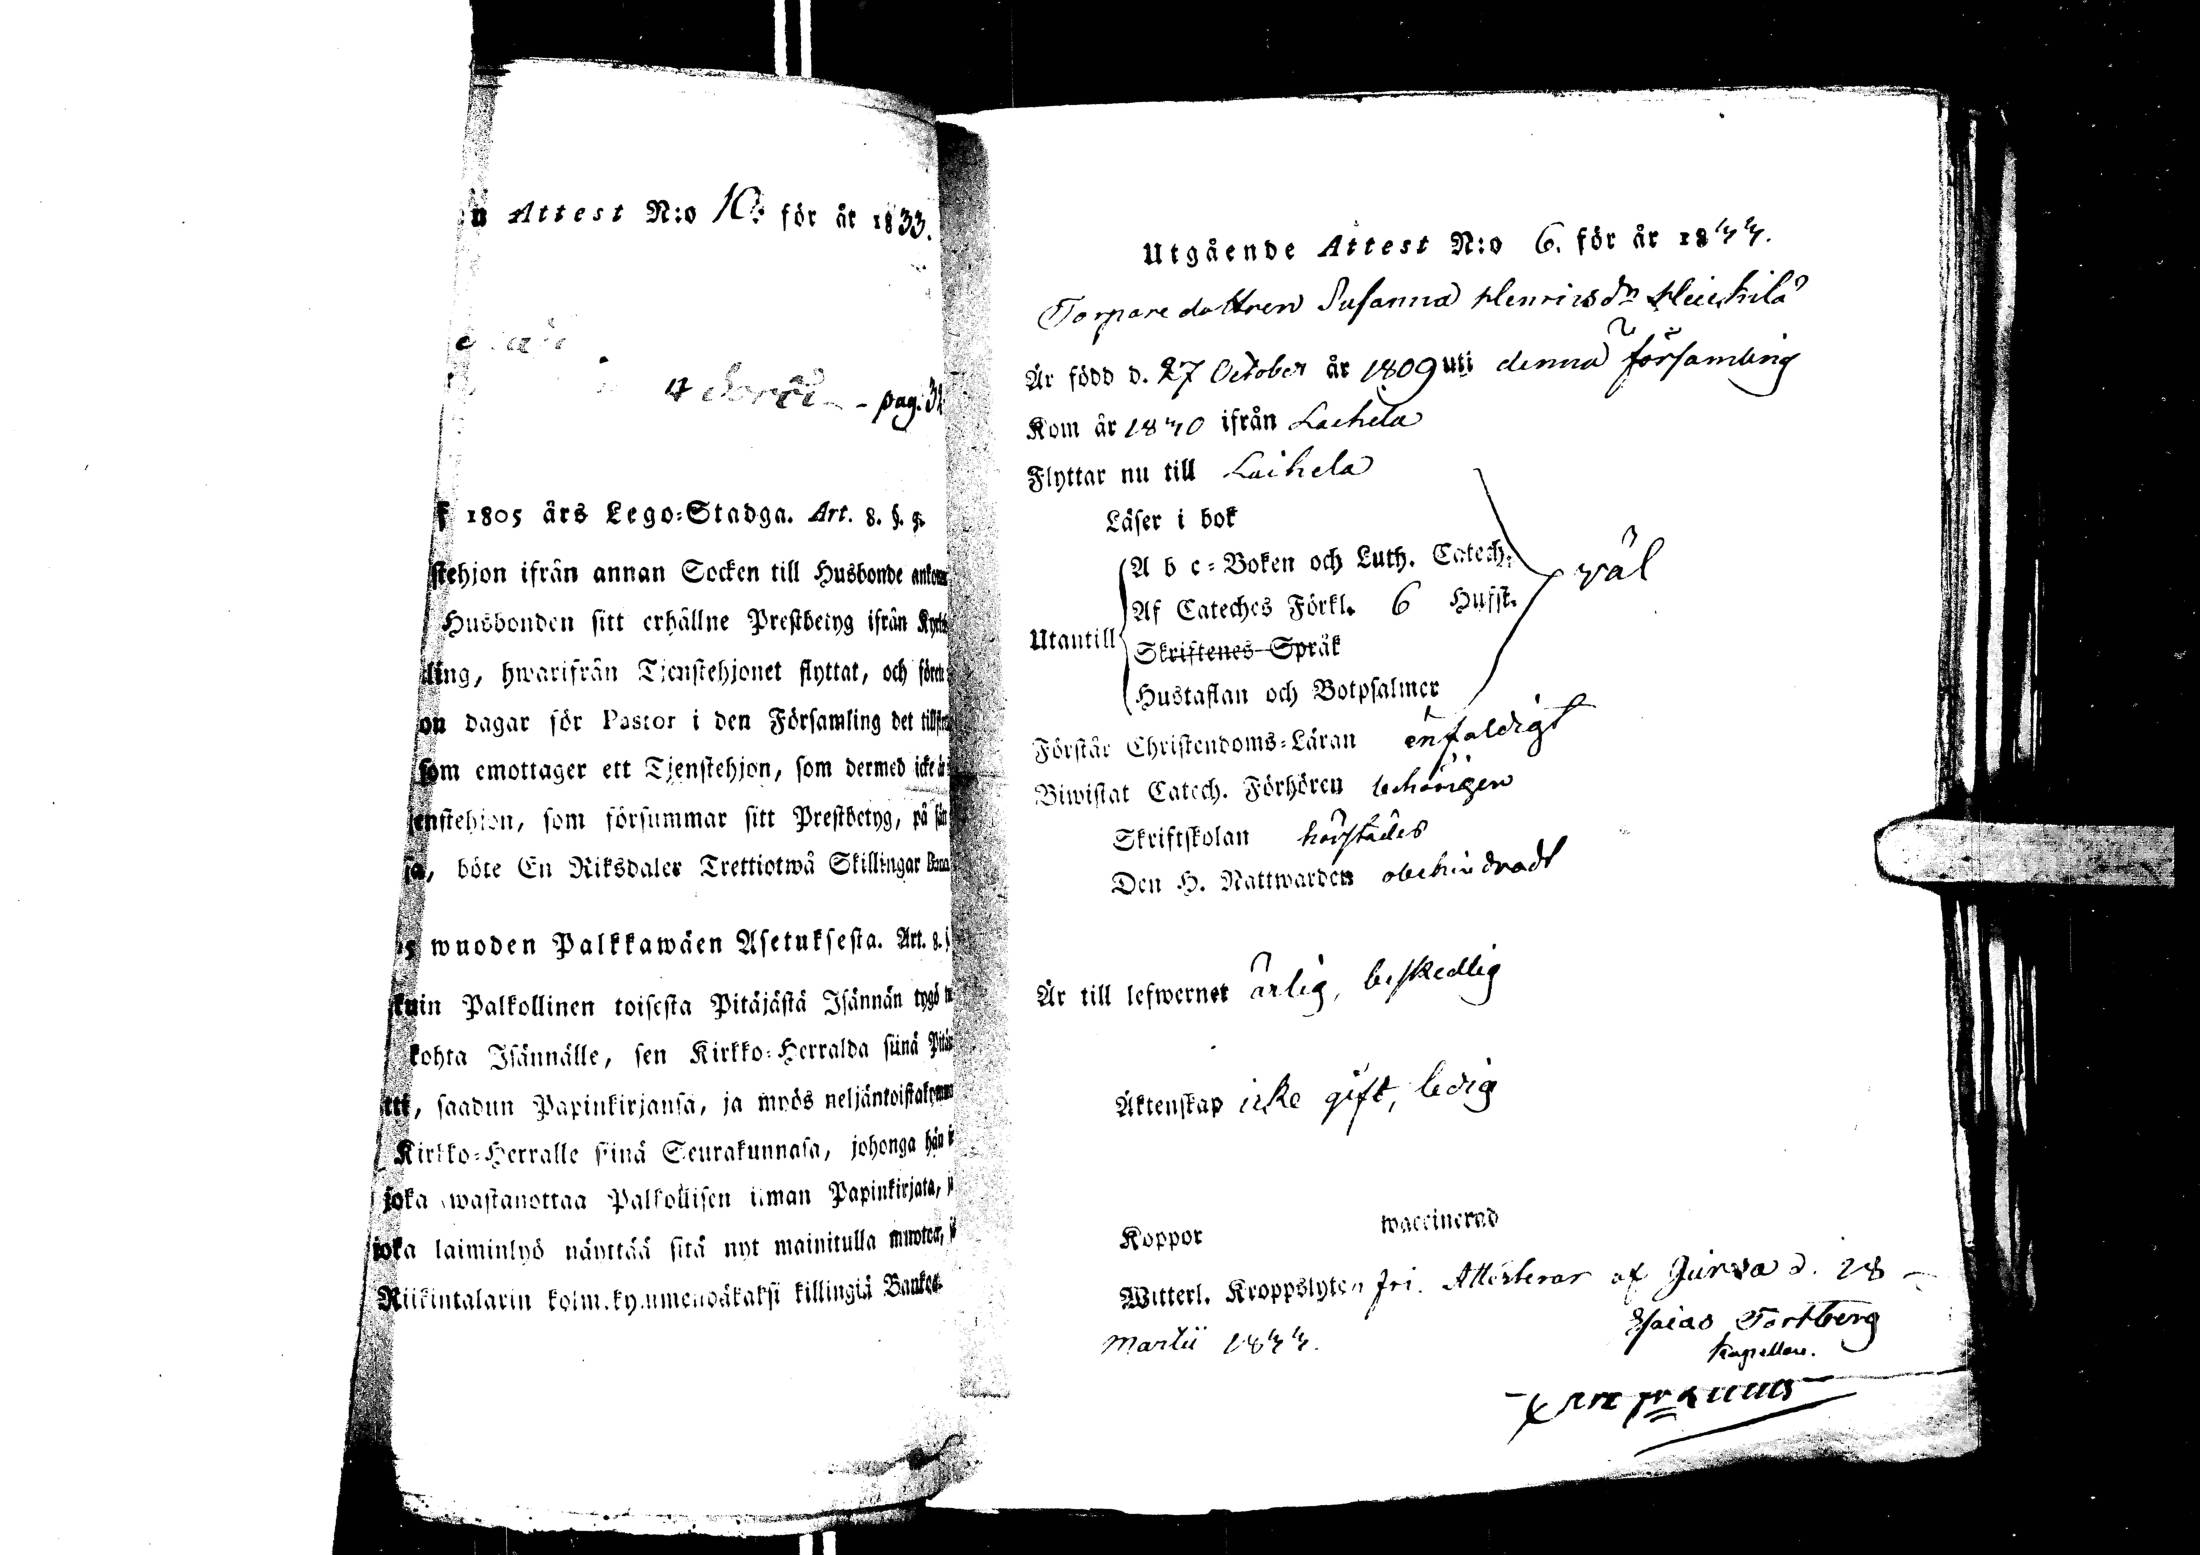 n Attest N:o 10. för år 1833.
pag. 3
1805 års Lego-Stadga. Art. 8. §. 9.
stehjon ifrån annan Socken till Husbonde
Husbonden sitt erhållne Prestbetyg ifrån
ling, hwarifrån Tjenstehjonet flyttat, och
on dagar för Pastor i den Församling det
som emottager ett Tjenstehjon, som dermed icke
enstehjon, som försummar sitt Prestbetyg, på
sa, böte En Riksdaler Trettiotwå Skillingar
5 wuoden Palkkawäen Asetuksesta. Art. 8. §
kuin Palkollinen toisesta Pitäjästä Isännän tygö
kohta Isännälle, sen Kirkko-Herralda siinä
tti, saadun Papinkirjansa, ja myös
Kirkko-Herralle siinä Seurakunnasa, johonga hän
joka wastanottaa Palkollisen ilman Papinkirjata,
joka laiminlyö näyttää sitä nyt mainitulla muotoa,
Riikintalarin kolm.kymmendäkaksi killingiä
Utgående Attest N:o 6. för år 1844.
Torpare dottren Susanna Henricsdr Heickilä
Är född d. 27 October år 1809 uti denna församling
Kom år 1840 ifrån Laihela
Flyttar nu till Laihela
Läser i bok
A b c-Boken och Luth. Catech.
wäl
Af Cateches Förkl. 6 Hufst.
Utantill
Skriftenes Språk
Hustaflan och Botpsalmer
Förstår Christendoms-Läran enfaldigt
Biwistat Catech. Förhören behörigen
Skriftskolan härstädes
Den H. Nattwarden obehindradt
Är till lefwernet ärlig, beskedlig
Äktenskap icke gift, ledig
Koppor waccinerad
Witterl. Kroppslyten fri. Attesterar af Jurva d. 28
Martii 1844.
Esaias Fortberg
Kapellan.